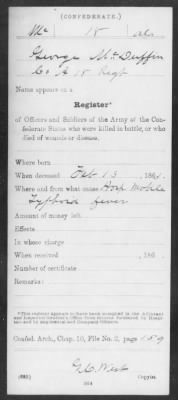 (CONFEDERATE.)
Mc 18 Ala
George McDuffin
Co. A 18 Regt
Name appears on a
Register*
of Officers and Soldiers of the Army of the Con-
federate States who were killed in battle, or who
died of wounds or disease.
Where born
When deceased Feb 13, 186
Where and from what cause Hosp Mobile
Typhoid fever
Amount of money left
Effects
In whose charge
When received , 186 .
Number of certificate
Remarks:
*This register appears to have been compiled in the Adjutant
and Inspector General's Office from returns furnished by Hospi-
tals and by Regimental and Company Officers.
Confed. Arch., Chap. 10, File No. 2, page 159
G. C. West
(635) Copyist.